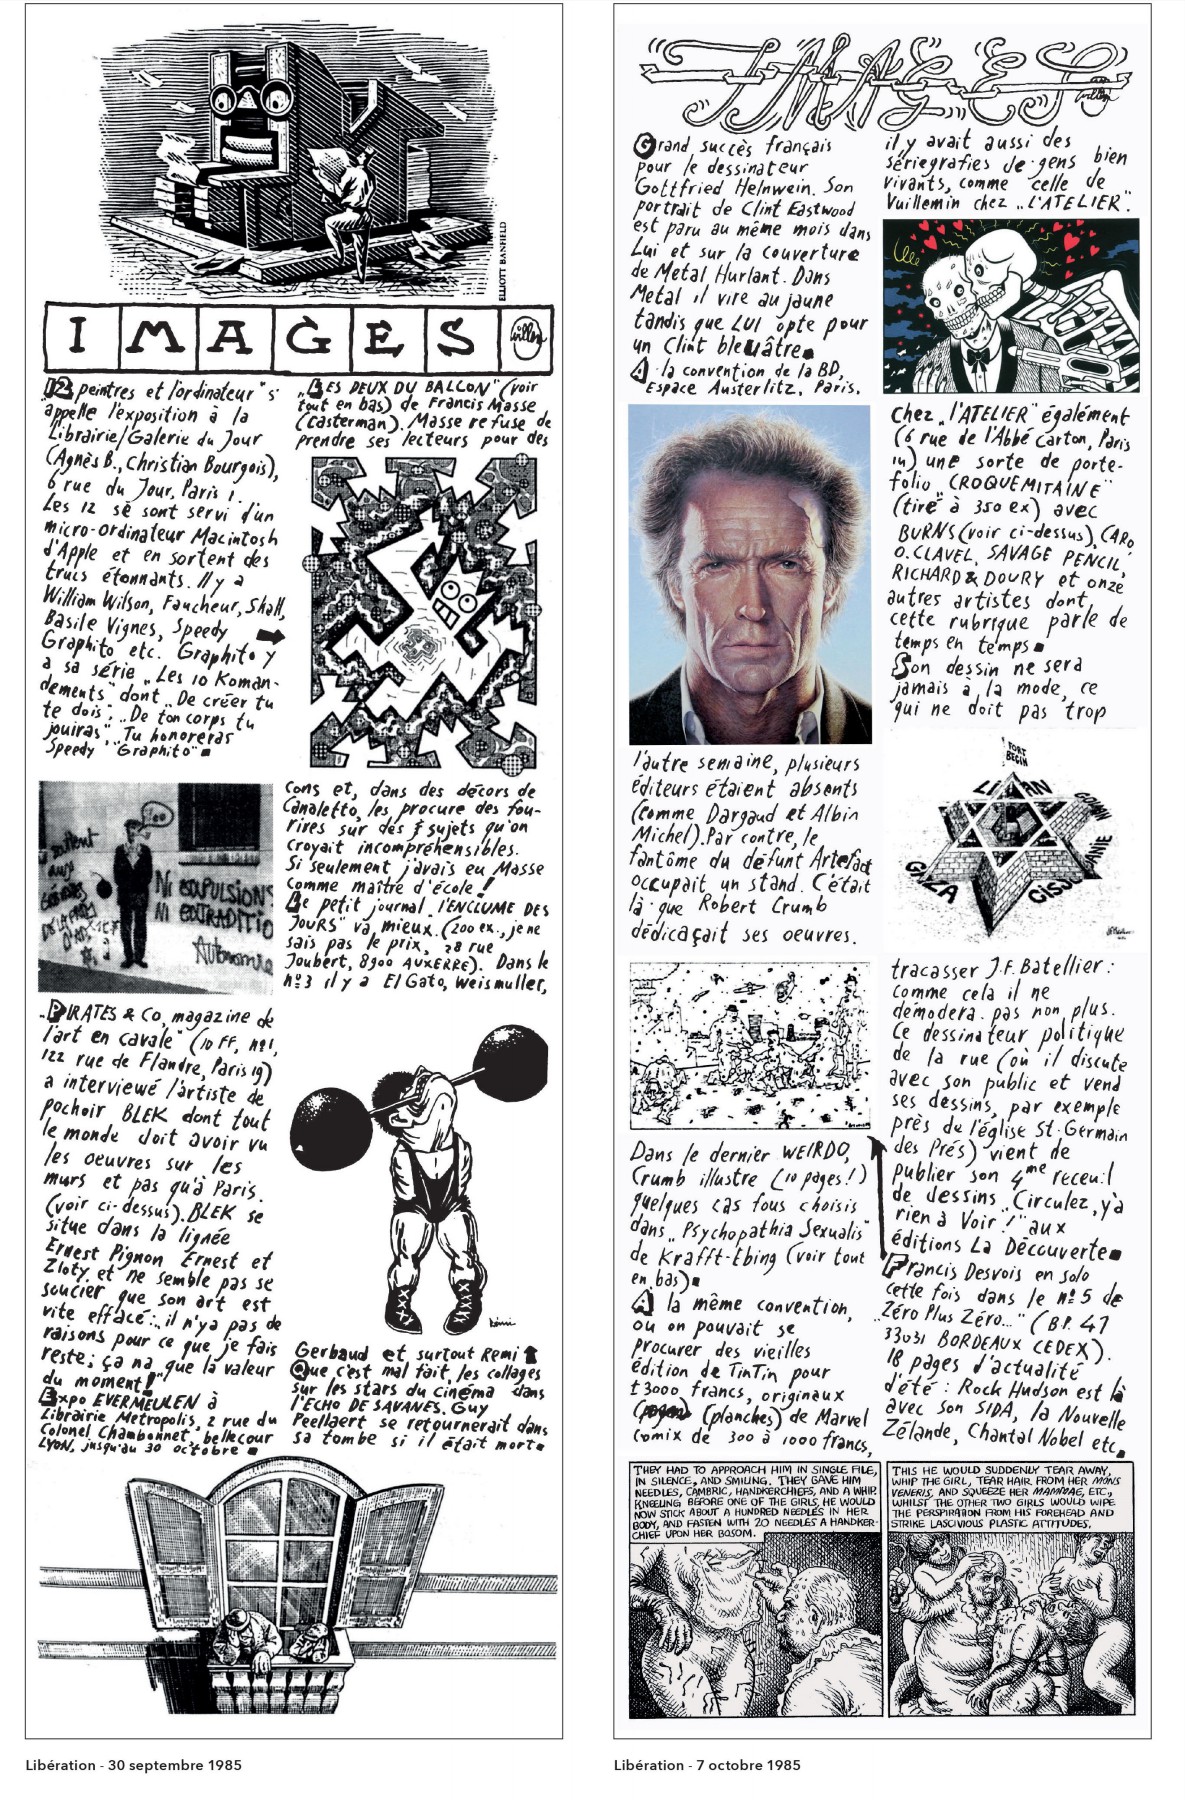 ELLIOTT BANFIELD
IMAGES
willem
12 peintres et l'ordinateur" s'
appelle l'exposition à la
Librairie/Galerie du Jour
(Agnès B., Christian Bourgois),
6 rue du Jour, Paris 1.
Les 12 se sont servi d'un
micro-ordinateur Macintosh
d'Apple et en sortent des
trucs étonnants. Il y a
William Wilson, Faucheur, Shall,
Basile Vignes, Speedy
Graphito etc. Graphito y
a sa série „Les 10 Koman-
dements" dont „De créer tu
te dois", „De ton corps tu
jouiras", „Tu honoreras
Speedy Graphito"
Ni EXPULSIONS
Ni EXTRADITIO
Autonomie
„PIRATES & Co, magazine de
l'art en cavale" (10 FF, nº1,
122 rue de Flandre, Paris 19)
a interviewé l'artiste de
pochoir BLEK dont tout
le monde doit avoir vu
les oeuvres sur les
murs et pas qu'à Paris.
(voir ci-dessus). BLEK se
situe dans la lignée
Ernest Pignon Ernest et
Zloty, et ne semble pas se
soucier que son art est
vite effacé: „il n'ya pas de
raisons pour ce que je fais
reste; ça na que la valeur
du moment!"
Expo EVERMEULEN à
Librairie Metropolis, 2 rue du
Colonel Chambonnet, bellecour
LYON, jusqu'au 30 octobre
„LES DEUX DU BALCON" (voir
tout en bas) de Francis Masse
(Casterman). Masse refuse de
prendre ses lecteurs pour des
cons et, dans des décors de
Canaletto, les procure des fou-
rires sur des sujets qu'on
croyait incompréhensibles.
Si seulement j'avais eu Masse
comme maître d'école!
Le petit journal „l'ENCLUME DES
JOURS" va mieux. (200 ex., je ne
sais pas le prix, 28 rue
Joubert, 8900 AUXERRE). Dans le
nº3 il y a El Gato, Weismuller,
Rémi
Gerbaud et surtout Remi
Que c'est mal fait, les collages
sur les stars du cinéma dans
l'ECHO DE SAVANES. Guy
Peellaert se retournerait dans
sa tombe si il était mort.
Libération - 30 septembre 1985
IMAGES
willem
Grand succès français
pour le dessinateur
Gottfried Helnwein. Son
portrait de Clint Eastwood
est paru au même mois dans
Lui et sur la couverture
de Metal Hurlant. Dans
Metal il vire au jaune
tandis que LUI opte pour
un Clint bleuâtre
A la convention de la BD,
Espace Austerlitz, Paris,
l'autre semaine, plusieurs
éditeurs étaient absents
(comme Dargaud et Albin
Michel). Par contre, le
fantôme du défunt Artefact
occupait un stand. C'était
là que Robert Crumb
dédicaçait ses oeuvres.
Dans le dernier WEIRDO,
Crumb illustre (10 pages!)
quelques cas fous choisis
dans „Psychopathia Sexualis"
de Krafft-Ebing (voir tout
en bas)
A la même convention,
ou on pouvait se
procurer des vieilles
édition de TinTin pour
13000 francs, originaux
(planches) de Marvel
Comix de 300 à 1000 francs,
il y avait aussi des
sériegrafies de gens bien
vivants, comme celle de
Vuillemin chez „L'ATELIER".
Chez „l'ATELIER" également
(6 rue de l'Abbé Carton, Paris
14) une sorte de porte-
folio „CROQUEMITAINE"
(tiré à 350 ex) avec
BURNS (voir ci-dessus), CARO,
O. CLAVEL, SAVAGE PENCIL,
RICHARD & DOURY et onze
autres artistes dont
cette rubrique parle de
temps en temps
Son dessin ne sera
jamais à la mode, ce
qui ne doit pas trop
FORT
BEGIN
LIBAN
GOLAN
GAZA
CISJORDANIE
tracasser J.F. Batellier:
comme cela il ne
démodera pas non plus.
Ce dessinateur politique
de la rue (où il discute
avec son public et vend
ses dessins, par exemple
près de l'église St-Germain
des Prés) vient de
publier son 4me receuil
de dessins „Circulez, y'a
rien à Voir!" aux
éditions La Découverte
Francis Desvois en solo
cette fois dans le nº5 de
„Zéro Plus Zéro..." (B.P. 47
33031 BORDEAUX CEDEX).
18 pages d'actualité
d'été: Rock Hudson est là
avec son SIDA, la Nouvelle
Zélande, Chantal Nobel etc.
THEY HAD TO APPROACH HIM IN SINGLE FILE,
IN SILENCE, AND SMILING. THEY GAVE HIM
NEEDLES, CAMBRIC, HANDKERCHIEFS, AND A WHIP.
KNEELING BEFORE ONE OF THE GIRLS, HE WOULD
NOW STICK ABOUT A HUNDRED NEEDLES IN HER
BODY, AND FASTEN WITH 20 NEEDLES A HANDKER-
CHIEF UPON HER BOSOM.
THIS HE WOULD SUDDENLY TEAR AWAY,
WHIP THE GIRL, TEAR HAIR FROM HER MONS
VENERIS, AND SQUEEZE HER MAMMAE, ETC.,
WHILST THE OTHER TWO GIRLS WOULD WIPE
THE PERSPIRATION FROM HIS FOREHEAD AND
STRIKE LASCIVIOUS PLASTIC ATTITUDES.
Libération - 7 octobre 1985